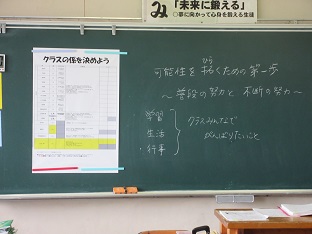 み
「未来に鍛える」
○夢に向かって心身を鍛える生徒
クラスの係を決めよう
可能性を拓くための第一歩
ひら
～普段の努力と不断の努力～
学習
生活
・行事
クラスみんなで
がんばりたいこと